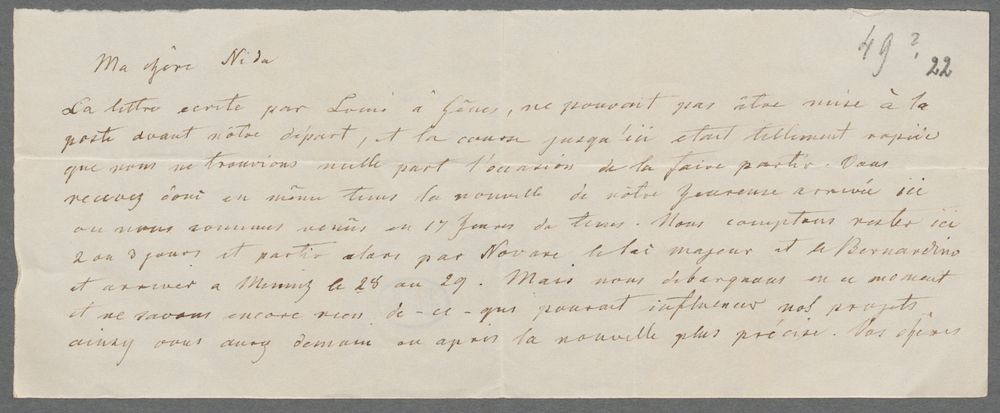 49 ?
22
Ma chère Nida
La lettre ecrite par Louis à Gênes, ne pouvoit pas âtre mise à la
poste avant nôtre départ, et la course jusqu'ici etait tellement rapide
que nous ne trouvions nulle part l'occasion de la faire partir. Vous
recevez donc en même tems la nouvelle de nôtre heureuse arrivée ici
ou nous sommes venûs en 17 heures de tems. Nous comptons rester ici
2 ou 3 jours et partir alors par Novare le lac majeur et le Bernardino
et arriver a le 28 ou 29. Mais nous débarquons en ce moment
et ne savons encore rien de-ce-qui pourait influencer nos projets
ainsy vous aurez demain ou après la nouvelle plus précise. Vos chères